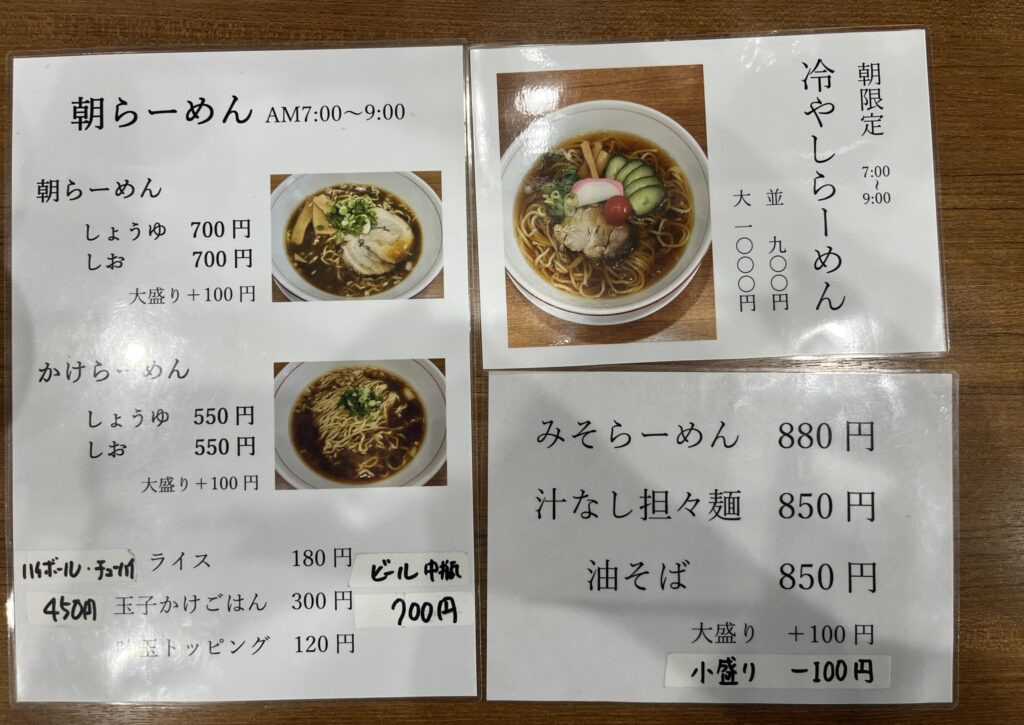 朝らーめん AM7:00〜9:00
朝らーめん
しょうゆ 700円
しお 700円
大盛り+100円
かけらーめん
しょうゆ 550円
しお 550円
大盛り+100円
ライス 180円
玉子かけごはん 300円
味玉トッピング 120円
ハイボール・チューハイ
450円
ビール 中瓶
700円
朝限定 7:00〜9:00
冷やしらーめん
並 九〇〇円
大 一〇〇〇円
みそらーめん 880円
汁なし担々麺 850円
油そば 850円
大盛り +100円
小盛り −100円